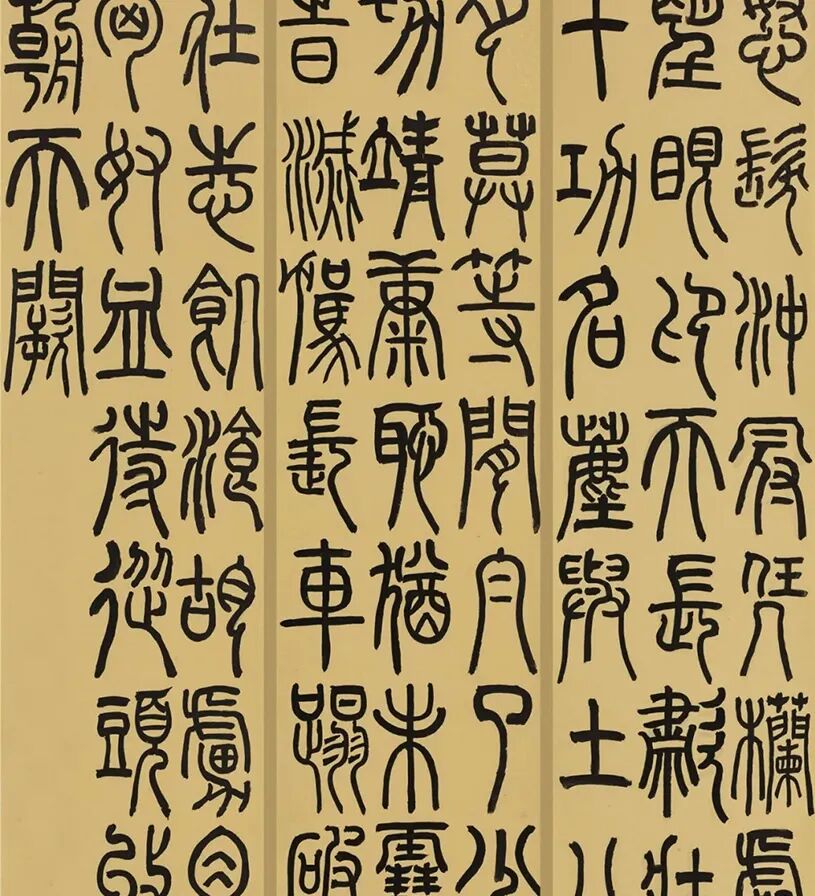 怒髮沖冠凭欄處
望眼卬天長嘯壯
十功名塵與土八
月莫等閒白了少
切靖康恥猶未雪
旹滅駕長車蹋破
壯志飢飡胡虜肉
匈奴血待從頭收
朝天闕